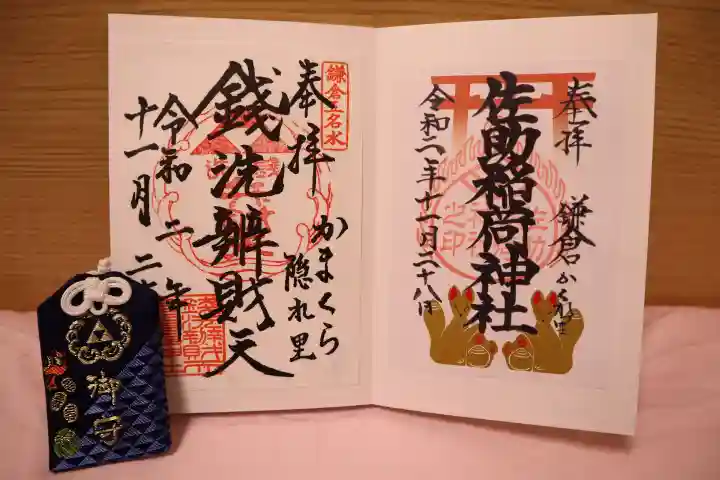 奉拝
鎌倉かくれ里
佐助稲荷神社
令和二年十一月二十八日
鎌倉五名水
奉拝
かまくら
隠れ里
銭洗辨財天
令和二年
十一月二十
御守